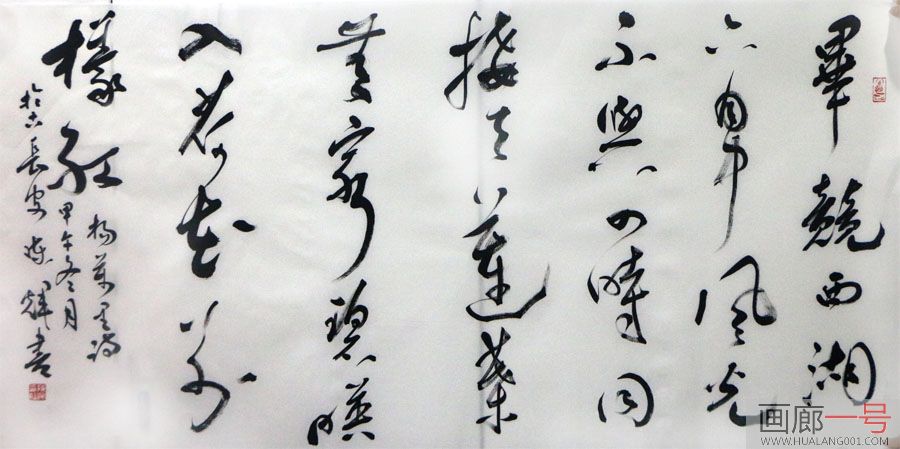 畢競西湖
六月中風光
不與四時同
接天蓮葉
無窮碧映
日荷花別
樣紅
楊萬里詩
甲午冬月
於古長安輝書
画廊一号
WWW.HUALANG001.COM